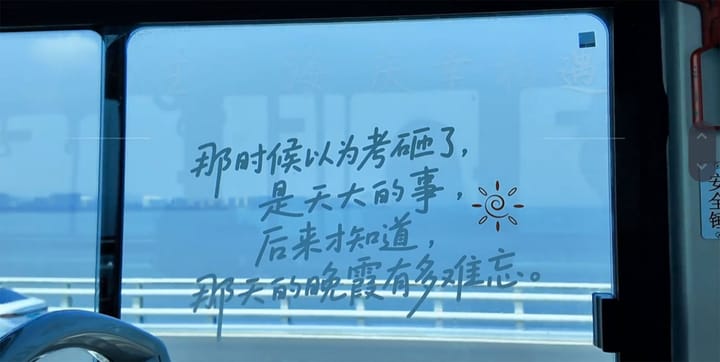 那时候以为考砸了，
是天大的事，
后来才知道，
那天的晚霞有多难忘。
安全锤